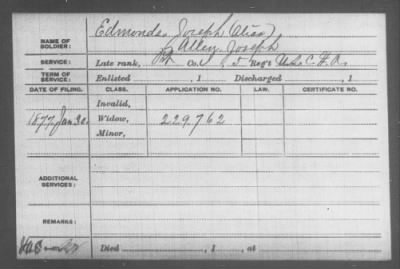 Edmonds, Joseph (Alias)
NAME OF SOLDIER: Alley, Joseph
SERVICE: Late rank, Pt Co. , 5 Reg't U.S.C.H.A.
TERM OF SERVICE: Enlisted , 1 Discharged , 1
DATE OF FILING. CLASS. APPLICATION NO. LAW. CERTIFICATE NO.
Invalid,
1877, Jan 30. Widow, 229762
Minor,
ADDITIONAL SERVICES:
REMARKS:
Died , 1 , at